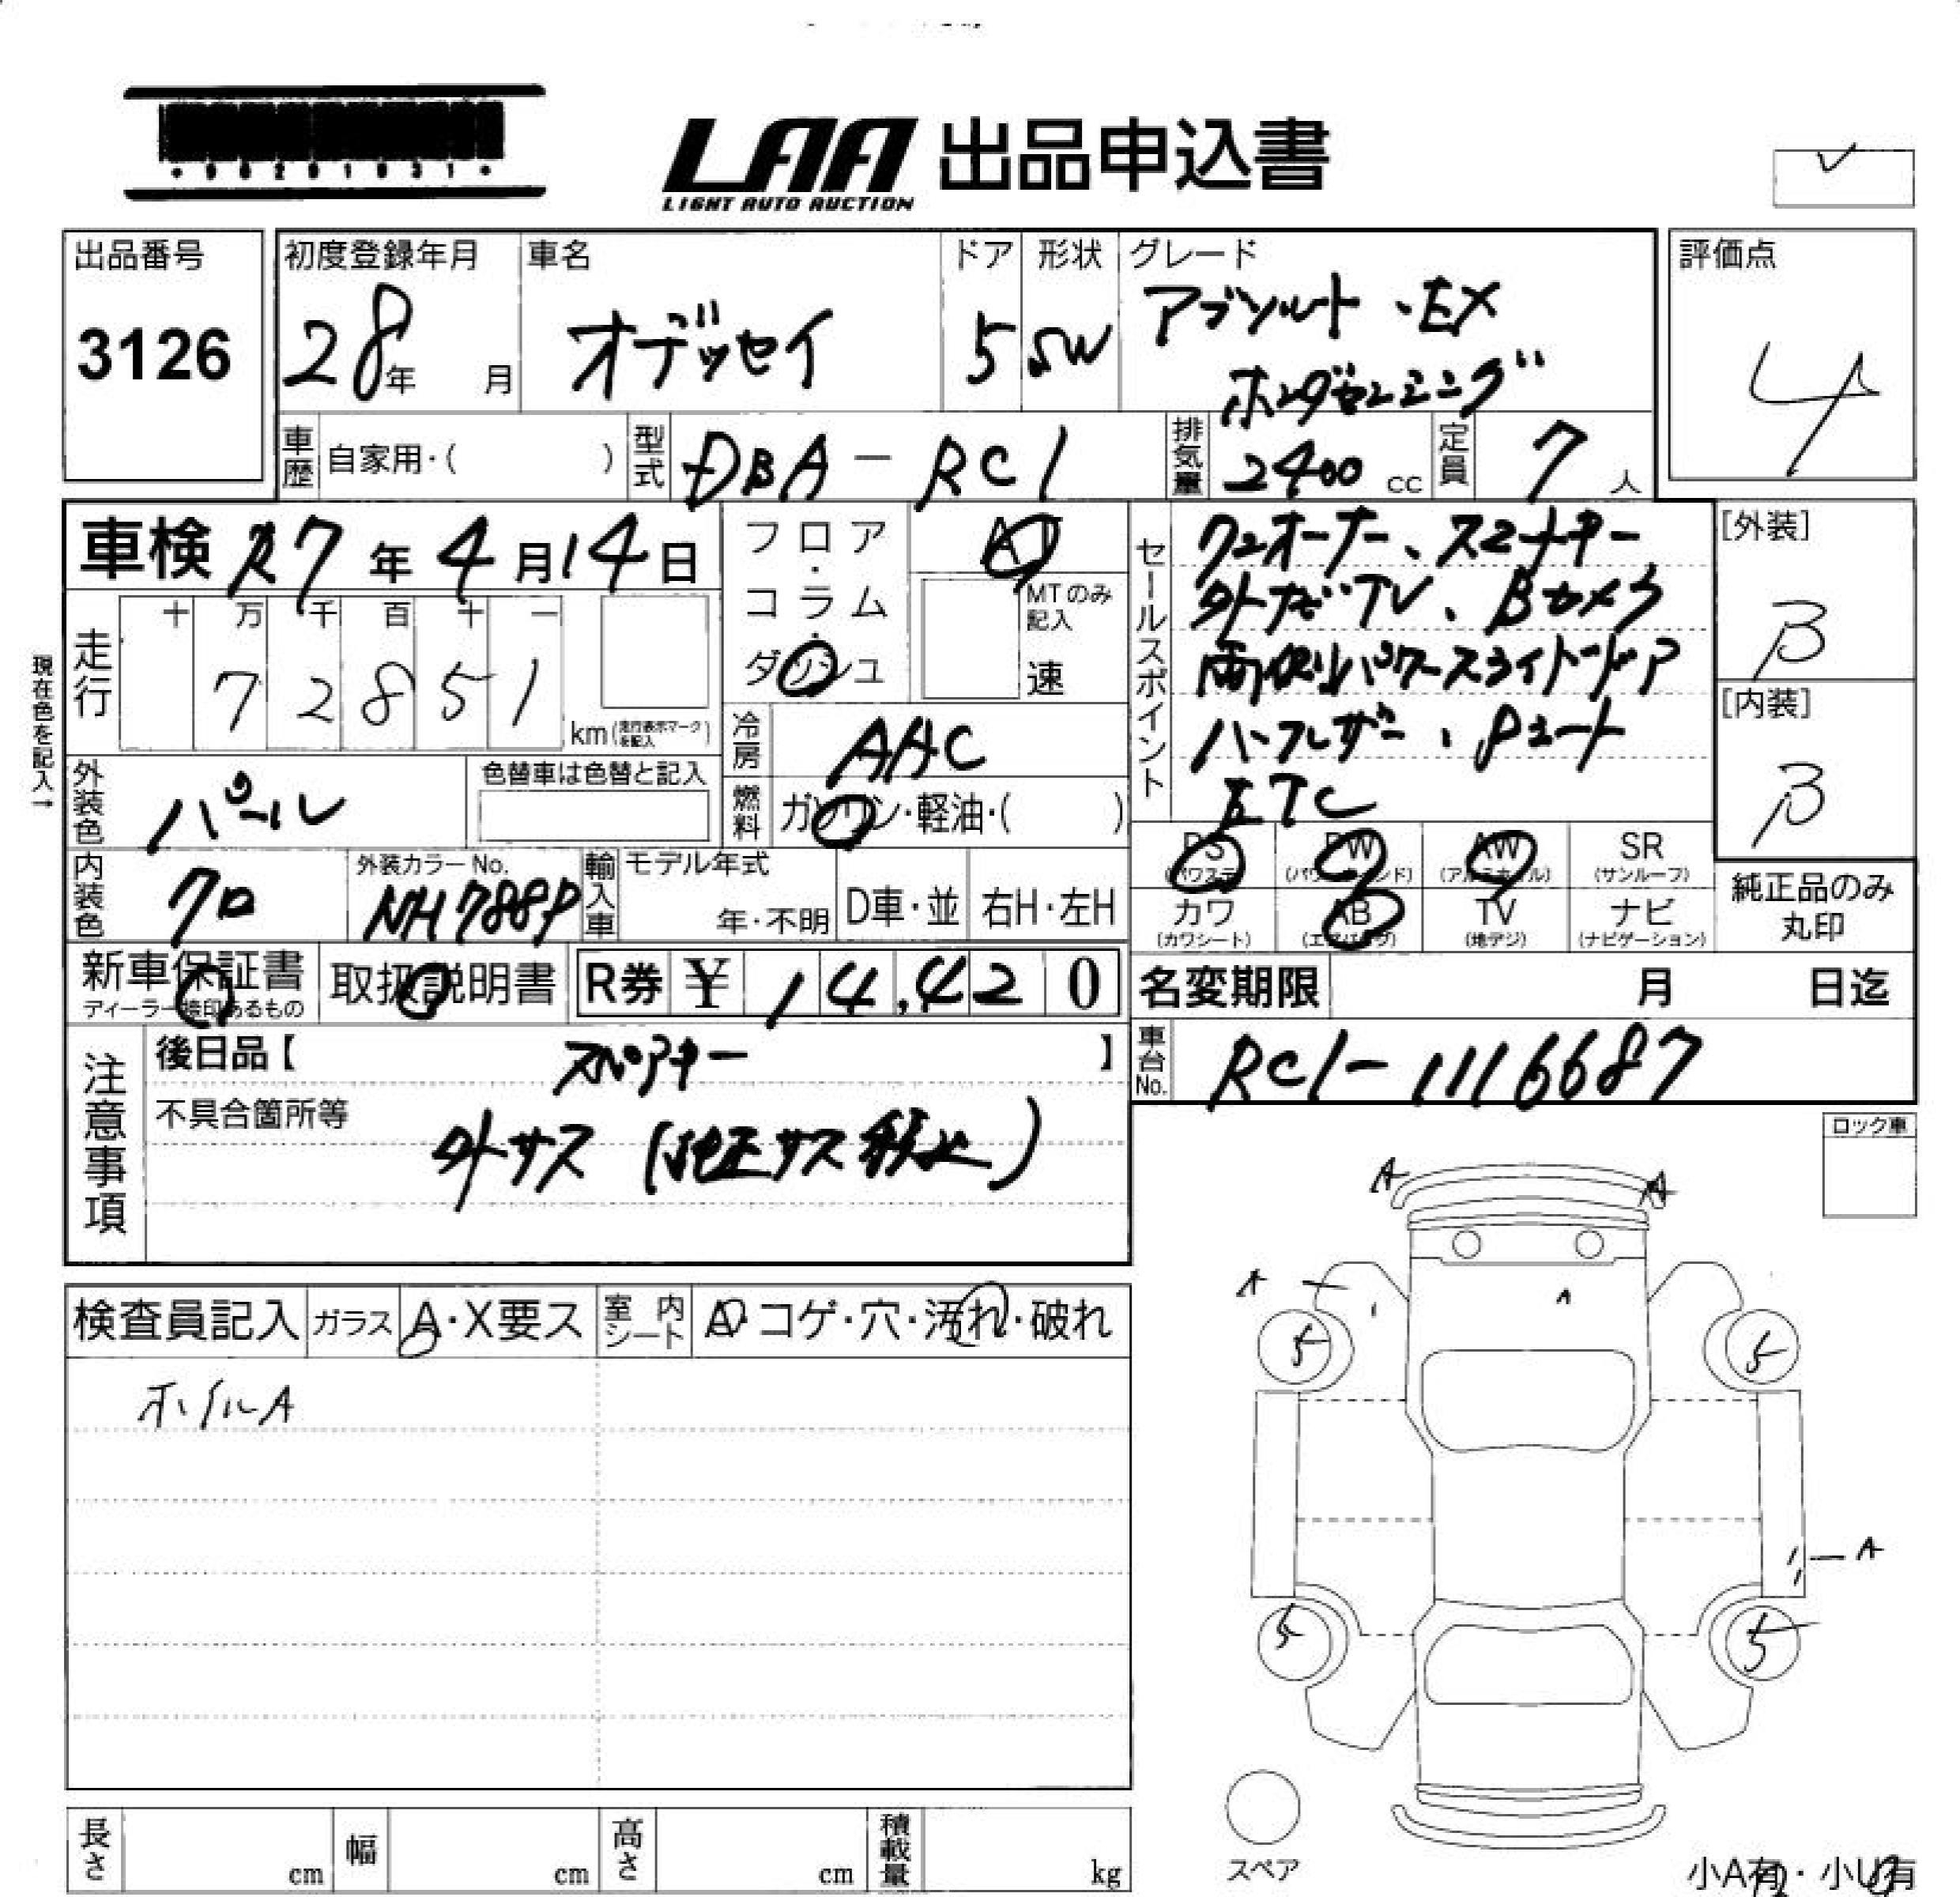 LAA 出品申込書
LIGHT AUTO AUCTION
出品番号
3126
初度登録年月
28年 月
車名
オデッセイ
ドア
5
形状
SW
グレード
アブソルート・EX
ホンダセンシング
評価点
4
車歴
自家用・( )
型式
DBA-RC1
排気量
2400 cc
定員
7 人
車検 R7年4月14日
フロア・コラム・ダッシュ
AT
MTのみ記入
速
セールスポイント
ワンオーナー、スマートキー
外ナビTV、Bカメラ
両側パワースライドドア
ハーフレザー、Pシート
ETC
[外装]
B
[内装]
B
現在色を記入→
走行
十 万 千 百 十 一
7 2 8 5 1
km(走行表示マークを記入)
冷房
AAC
燃料
ガソリン・軽油・( )
外装色
パール
色替車は色替と記入
内装色
クロ
外装カラーNo.
NH788P
輸入車
モデル年式
年・不明
D車・並
右H・左H
PS
(パワステ)
PW
(パワーウインド)
AW
(アルミホイル)
SR
(サンルーフ)
カワ
(カワシート)
AB
(エアバッグ)
TV
(地デジ)
ナビ
(ナビゲーション)
純正品のみ
丸印
新車保証書
ディーラー捺印あるもの
取扱説明書
R券 ¥ 14,420
名変期限 月 日迄
注意事項
後日品【 スペアキー 】
不具合箇所等
外サス (純正サス 無し)
車台No.
RC1-1116687
ロック車
検査員記入
ガラス
A・X要ス
室内シート
A コゲ・穴・汚れ・破れ
ホイルA
A
A
A
A
5
5
A
5
5
スペア
長さ cm
幅 cm
高さ cm
積載量 kg
小A有・小U有